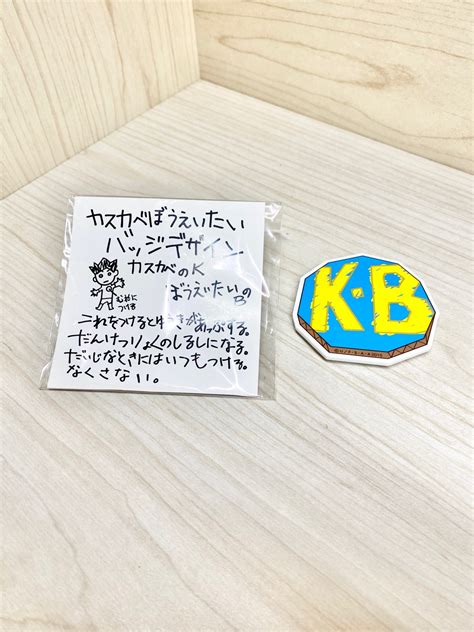 カスカベぼうえいたい
バッジデザイン
カスカベのK
ぼうえいたいのB
むねに
つける
これをつけるとゆうきがあっぷする。
だんけつりょくのしるしになる。
だいじなときにはいつもつける。
なくさない。
K・B